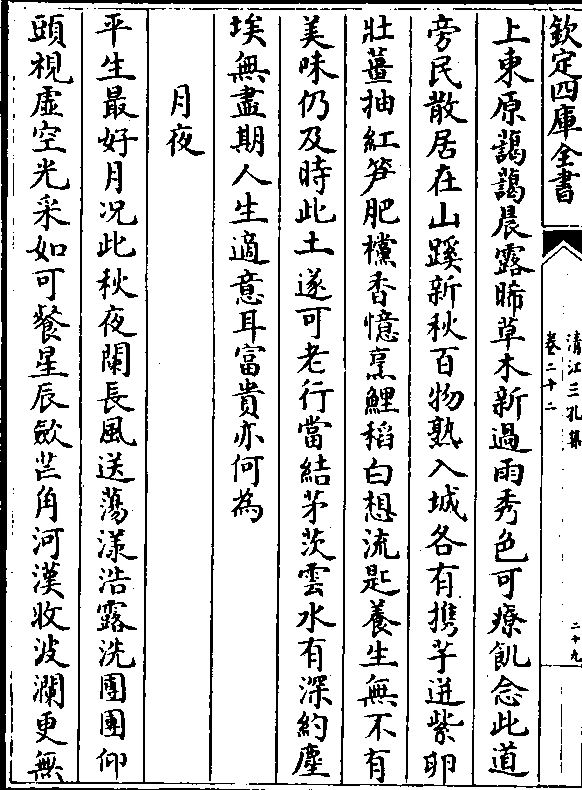 欽定四庫全書
清江三孔集
卷二十二
二十九
上東原藹藹晨露晞草木新過雨秀色可療飢念此道
旁民散居在山蹊新秋百物熟入城各有携芋迸紫卵
壯薑抽紅笋肥欓香憶烹鯉稻白想流匙養生無不有
美味仍及時此土遂可老行當結茅茨雲水有深約塵
埃無盡期人生適意耳富貴亦何為
月夜
平生最好月况此秋夜闌長風送蕩漾浩露洗團團仰
頭視虚空光采如可餐星辰歛芒角河漢收波瀾更無